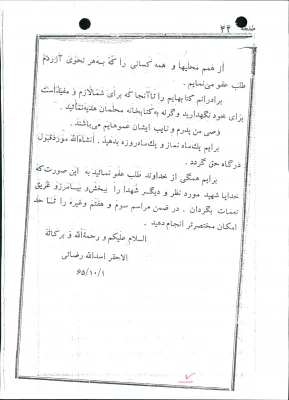 صفحه ۴۴
از همم محلیها و همه کسانی را که به هر نحوی آزردم
طلب عفو می‌نمایم .
برادرانم کتابهایم را تا آنجا که برای شما لازم و مفید است
برای خود نگهدارید و گرنه به کتابخانه محلمان هدیه نمائید .
وصی من پدرم و نایب ایشان عموهایم می‌باشند .
برایم یك ماه نماز و یك ماه روزه بدهید . انشاءالله مورد قبول
درگاه حق گردد .
برایم همگی از خداوند طلب عفو نمائید به این صورت که
خدایا شهید مورد نظر و دیگر شهدا را ببخش و بیامرز و غریق
نعمات بگردان . در ضمن مراسم سوم و هفتم و غیره را تا حد
امکان مختصرتر انجام دهید .
السلام علیکم و رحمة‌الله و برکاته
الاحقر اسدالله رضائی
۶۵/۱۰/۱
۷